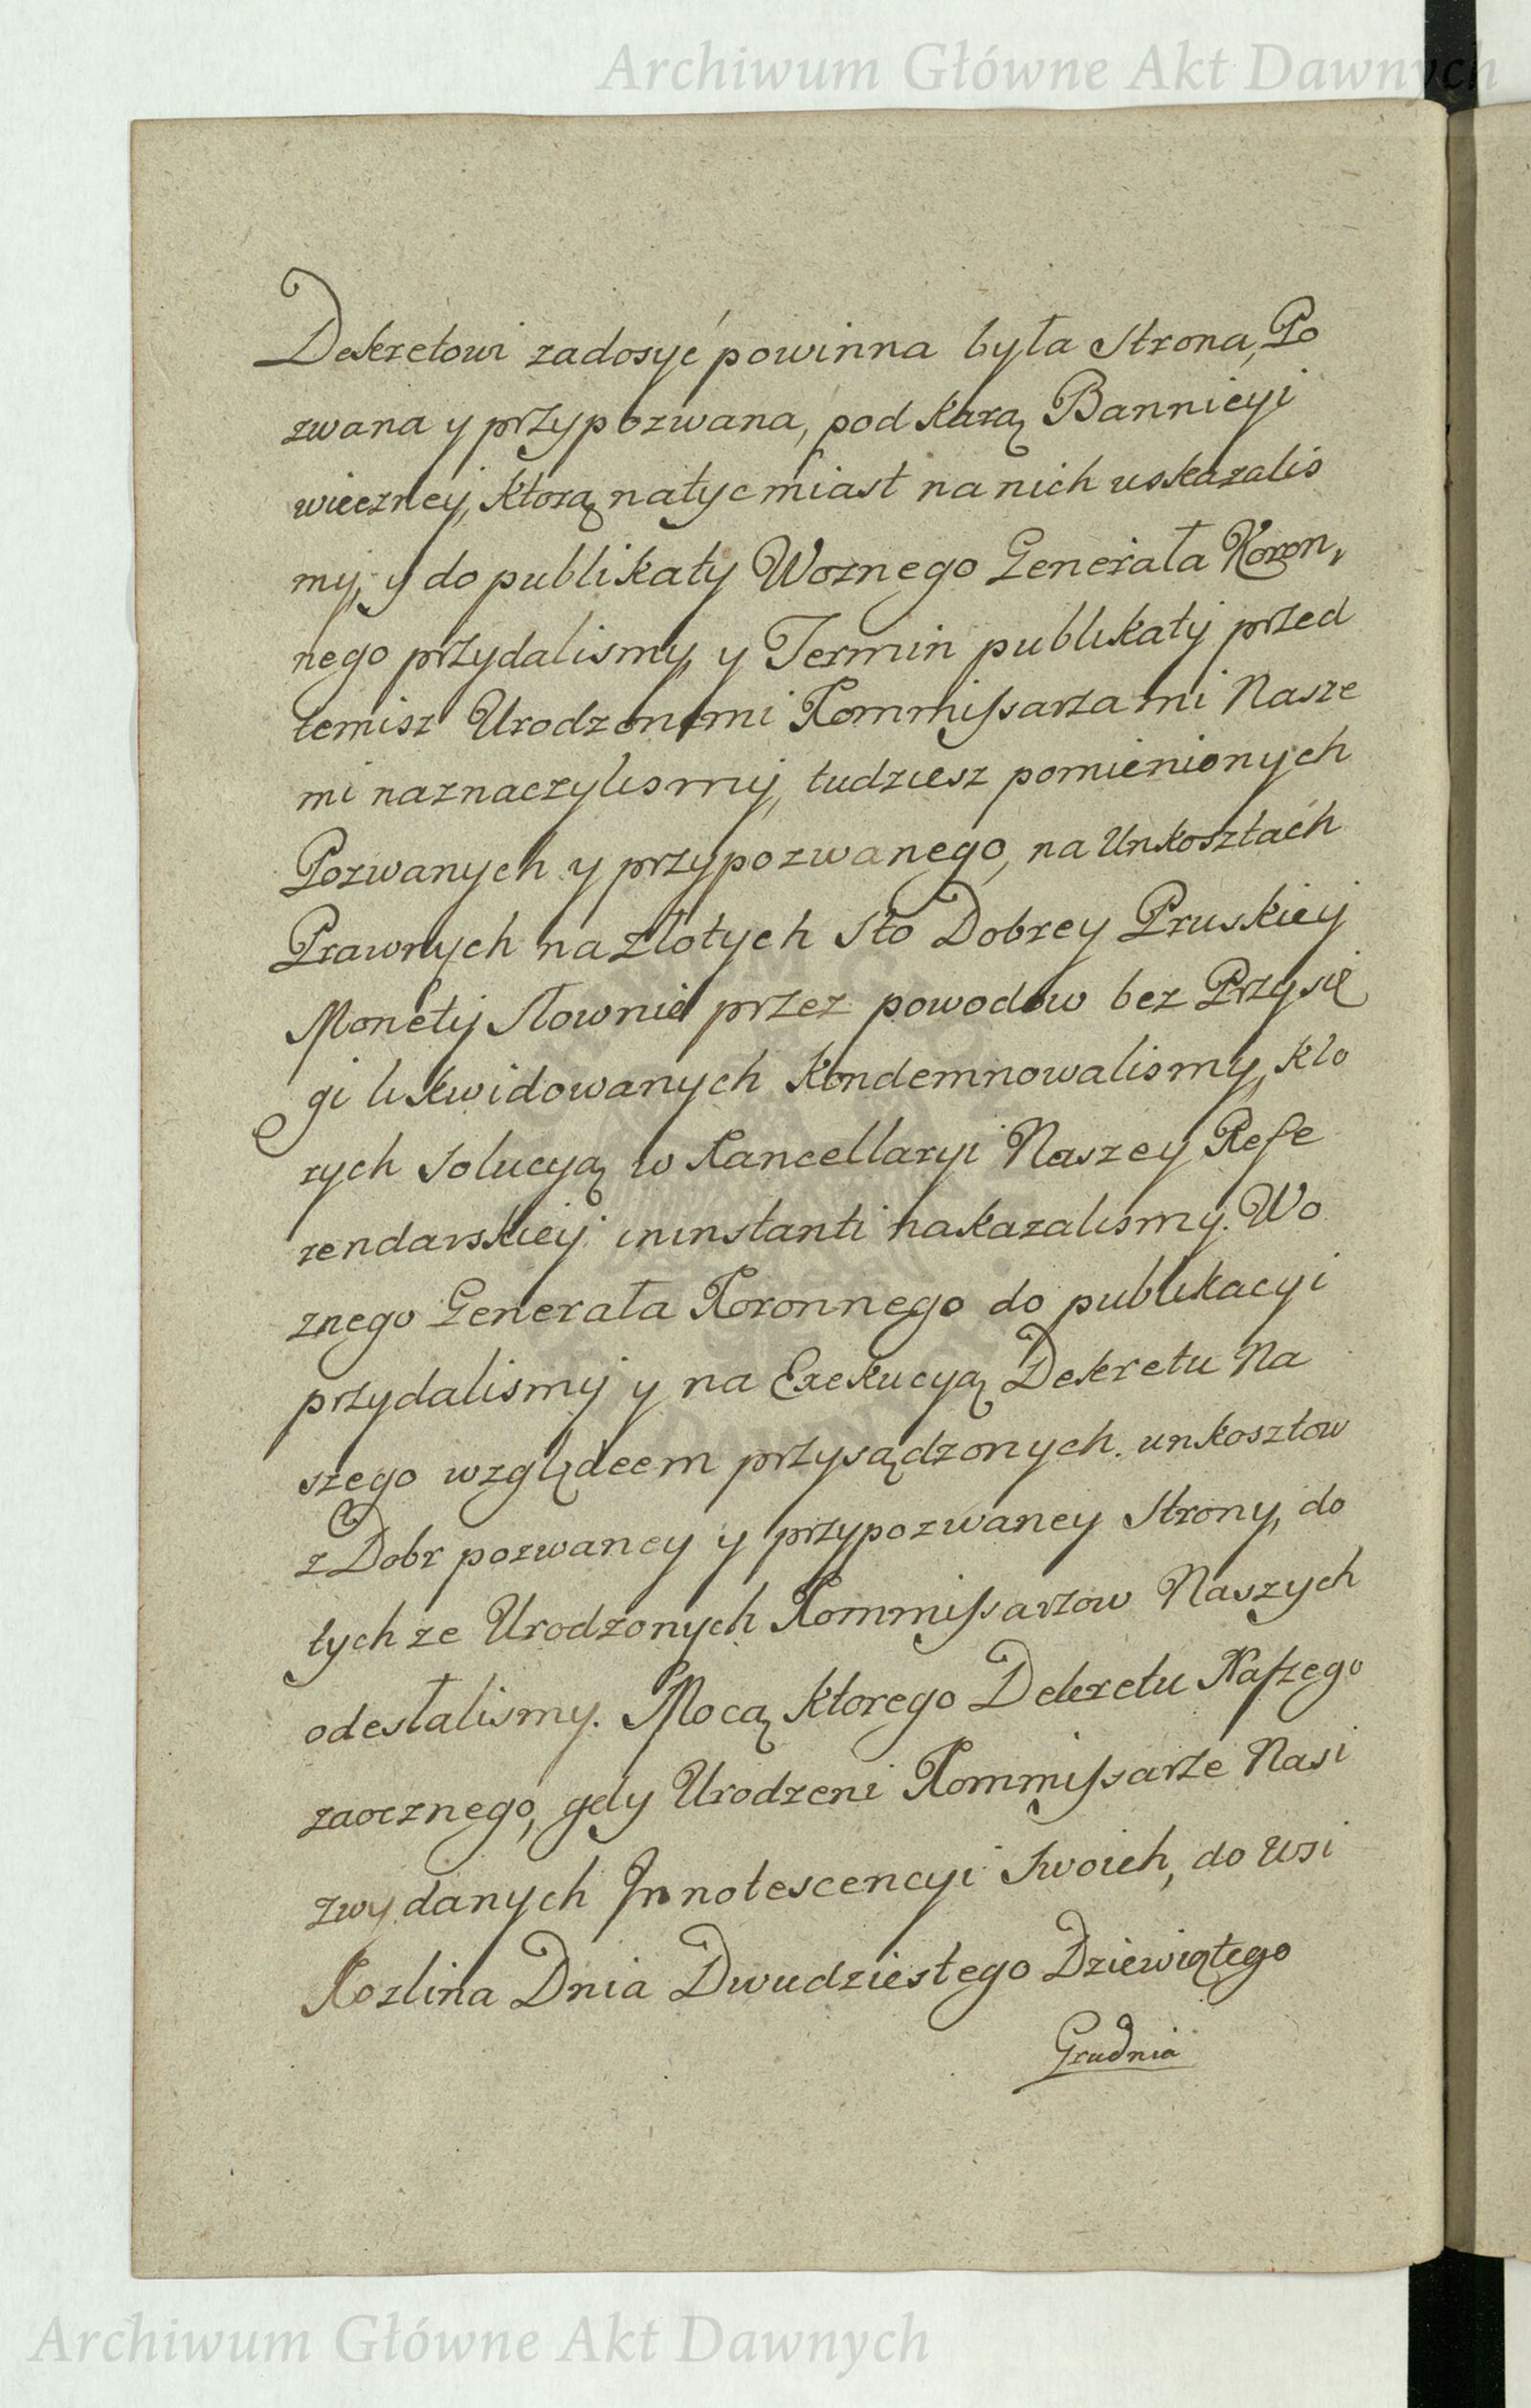 Archiwum Główne Akt Dawnych
Dekretowi zadosyć powinna była Strona Po
zwana y przypozwana, pod karą Bannicyi
wieczney, ktorą natycmiast na nich uskazalis
my, y do publikaty Woznego Generała Koron,
nego przydalismy, y Termin publikaty przed
temisz Urodzonymi Kommissarzami Nasze
mi naznaczylismy, tudziesz pomienionych
Pozwanych y przypozwanego, na Unkosztach
Prawnych na Złotych Sto Dobrey Pruskiey
Monety Słownie przez powodow bez Przysię
gi likwidowanych kondemnowalismy, kto
rych Solucyą w Kancellaryi Naszey Refe
rendarskiey ininstanti nakazalismy. Wo
znego Generała Koronnego do publikacyi
przydalismy y na Exekucyą Dekretu Na
szego względeem przysądzonych unkosztow
z Dobr pozwaney y przypozwaney Strony, do
tychze Urodzonych Kommissarzow Naszych
odesłalismy. Mocą ktorego Dekretu Naszego
zaocznego, gdy Urodzeni Kommissarze Nasi
zwydanych Innotescencyi Swoich, do wsi
Kozlina Dnia Dwudziestego Dziewiątego
Grudnia
Archiwum Główne Akt Dawnych